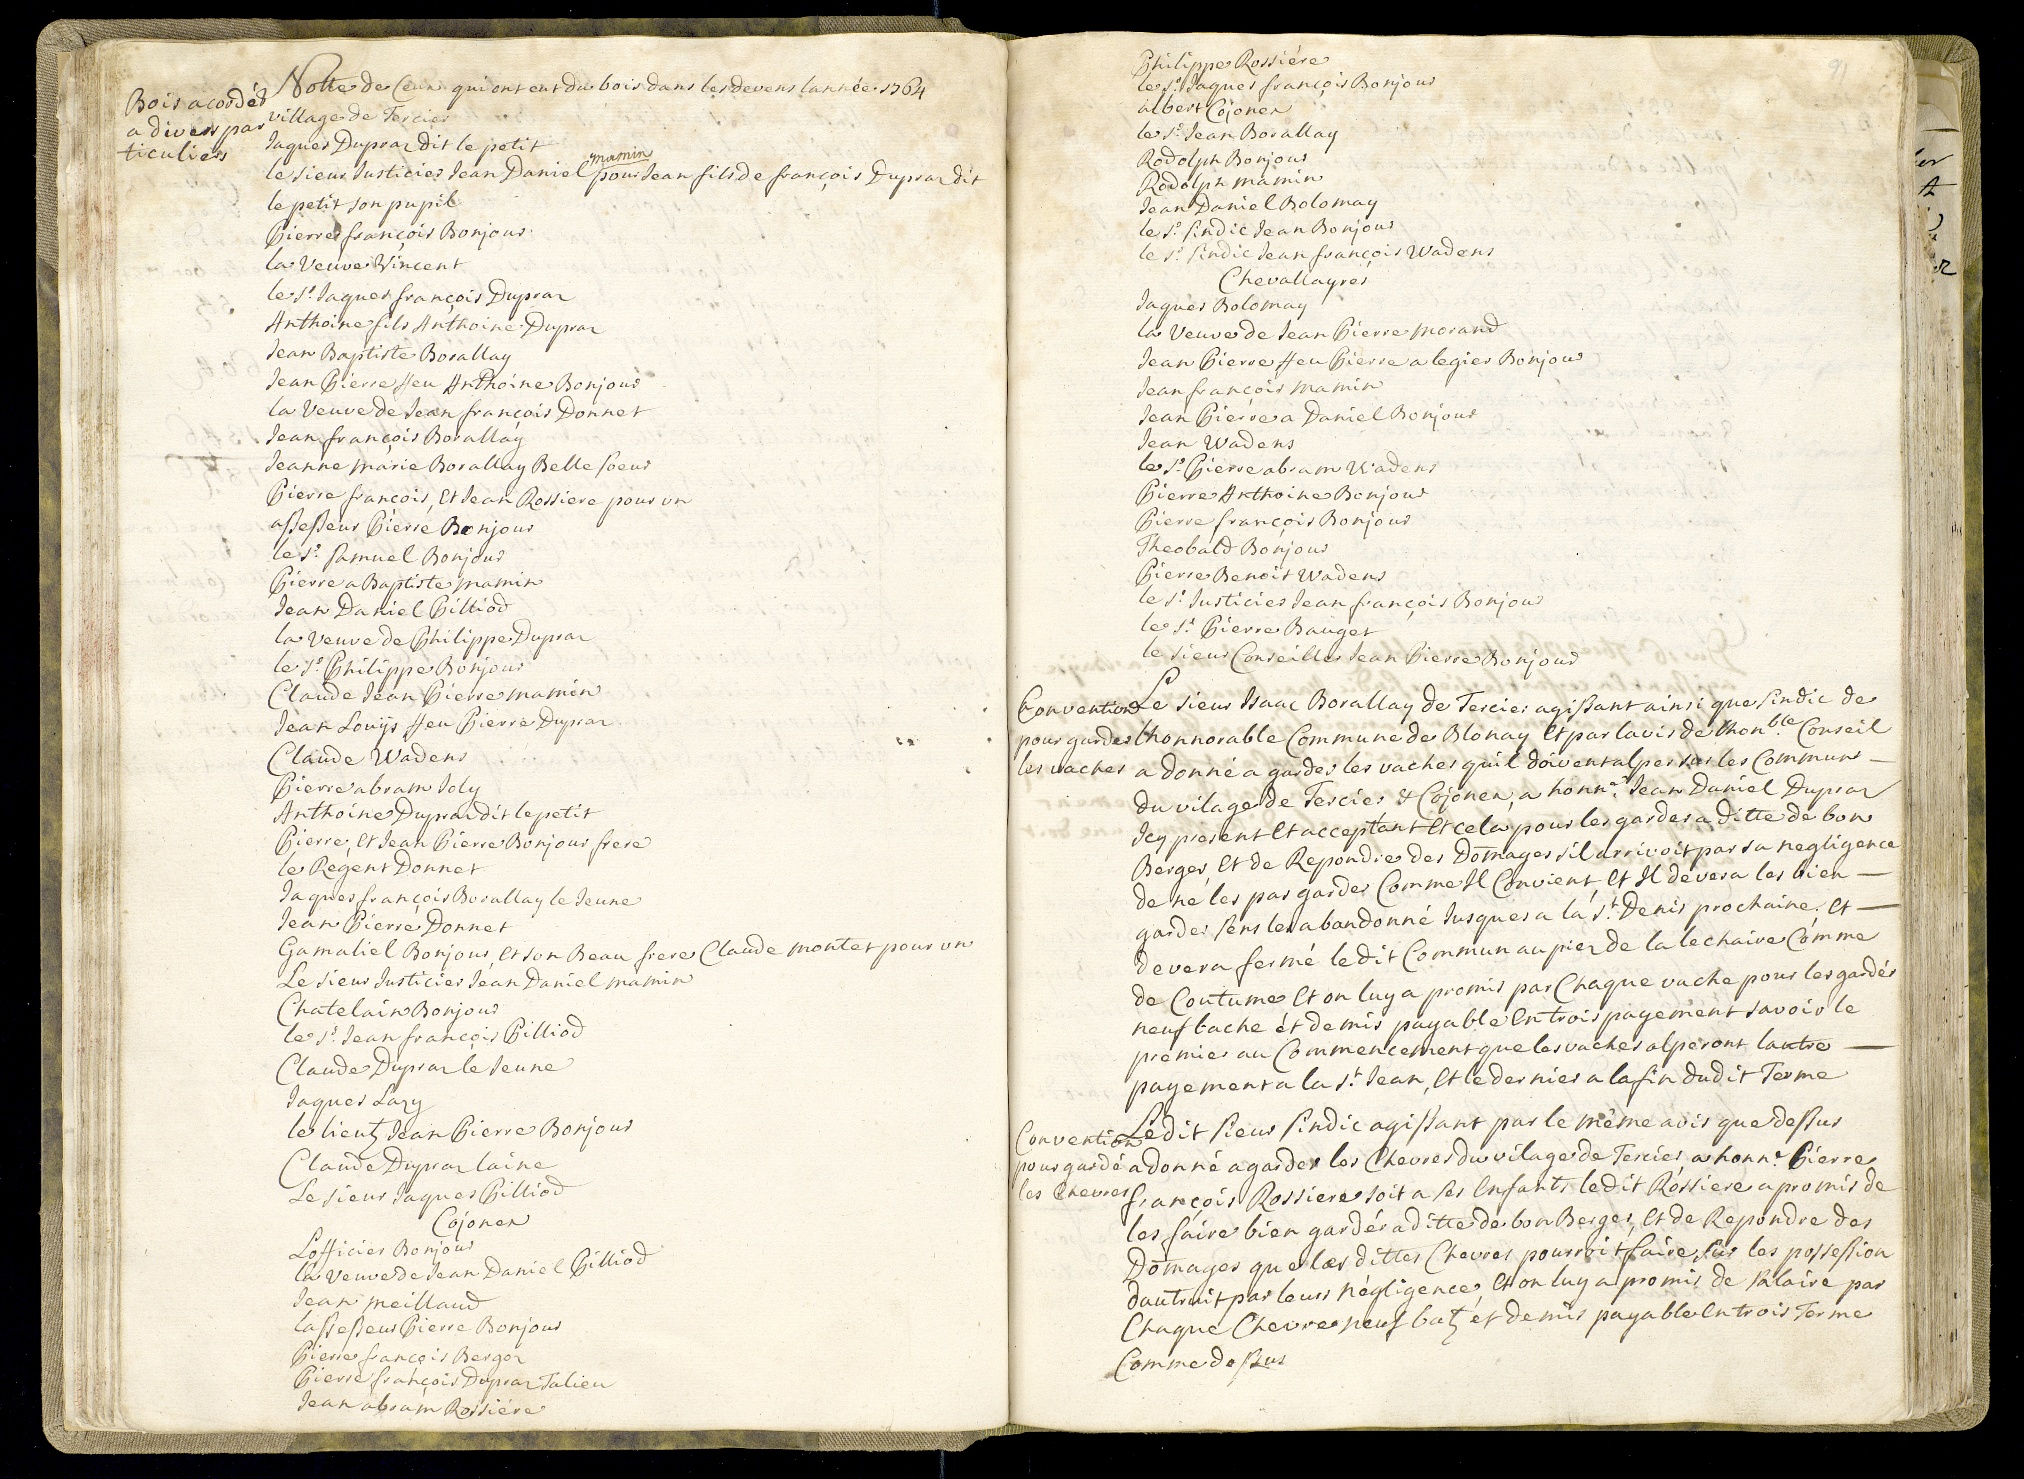 Bois acordéd
a divers par
ticuliers
Notte de Ceux qui ont eut du bois dans les devens lannée 1764
village de Tercier
Jaques Dupraz dit le petit
le sieur Justicier Jean Daniel mamin pour Jean fils de françois Dupraz dit
le petit son pupil
Pierre françois Bonjour
la Veuve Vincent
le Sr. Jaques françois Dupraz
Anthoine fils Anthoine Dupraz
Jean Baptiste Borallay
Jean Pierre ffeu Anthoine Bonjour
la Veuve de Jean françois Donnet
Jean françois Borallay
Jeanne marie Borallay Belle soeur
Pierre françois, Et Jean Rossiere pour un
assesseur Pierre Bonjour
le Sr. Samuel Bonjour
Pierre a Baptiste mamin
Jean Daniel Pilliod
la Veuve de Philippe Dupraz
le Sr. Philippe Bonjour
Claude Jean Pierre mamin
Jean Louÿs ffeu Pierre Dupraz
Claude Wadens
Pierre abram Joly
Anthoine Dupraz dit le petit
Pierre, Et Jean Pierre Bonjour frere
le Régent Donnet
Jaques françois Borallay le Jeune
Jean Pierre Donnet
Gamaliel Bonjour, Et son Beau frere Claude montet pour un
Le sieur Justicier Jean Daniel mamin
Chatelain Bonjour
le Sr. Jean françois Pilliod
Claude Dupraz le Jeune
Jaques Lazy
le lieutz Jean Pierre Bonjour
Claude Dupraz laine
Le sieur Jaques Pilliod
Cojonex
Lofficier Bonjour
la Veuve de Jean Daniel Pilliod
Jean meillaud
lassesseur Pierre Bonjour
Pierre françois Berger
Pierre françois Dupraz Talieu
Jean abram Rossiére
91
Philippe Rossiére
le Sr. Jaques françois Bonjour
albert Cojonex
le Sr. Jean Borallay
Rodolph Bonjour
Rodolph mamin
Jean Daniel Bolomay
le Sr. Sindic Jean Bonjour
le Sr. Sindic Jean françois Wadens
Chevallayres
Jaques Bolomay
la Veuve de Jean Pierre morand
Jean Pierre ffeu Pierre a legier Bonjour
Jean françois mamin
Jean Pierre a Daniel Bonjour
Jean Wadens
le Sr. Pierre abram Wadens
Pierre Anthoine Bonjour
Pierre françois Bonjour
Theobald Bonjour
Pierre Benoit Wadens
le Sr. Justicier Jean françois Bonjour
le Sr. Pierre Bauget
le sieur Conseiller Jean Pierre Bonjour
Convention
pour garder
les vaches
Le sieur Isaac Borallay de Tercier agissant ainsi que Sindic de
lhonnorable Commune de Blonay Et par lavis de lhonble. Conseil
a donné a garder les vaches quil doivent alper sur les Commun
du vilage de Tercier & Cojonex, a honnr. Jean Daniel Dupraz
Icy present Et acceptant Et cela pour les garder a ditte de bon
Berger, Et de Repondre des Domages sil arrivoit par sa negligence
de ne les pas garder Comme Il Convient, Et Il devera les bien
garder sens les abandonné Jusques a la St. Denis prochaine. Et
devera fermé le dit Commun au piez de la lechaire Comme
de Coutume Et on luy a promis par Chaque vache pour les gardér
neuf bache ét demis payable En trois payement savoir le
premier au Commencement que les vaches alperont lautre
payement a la St. Jean, Et le dernier a la fin dudit Terme
Convention
pour gardé
les Chevres
Le dit sieur Sindic agissant par le même avis que dessus
a donné a garder les Chevres du vilage de Tercier a honnr. Pierre
françois Rossiere soit a ses Enfants le dit Rossiere a promis de
les faire bien gardér a ditte de bon Berger, Et de Repondre des
Domages que les dittes Chevres pourroit faire sur les possession
dautruit par leurs négligence, Et on luy a promis de salaire par
Chaque Chevre neuf batz ét demis payable En trois Terme
Comme dessus